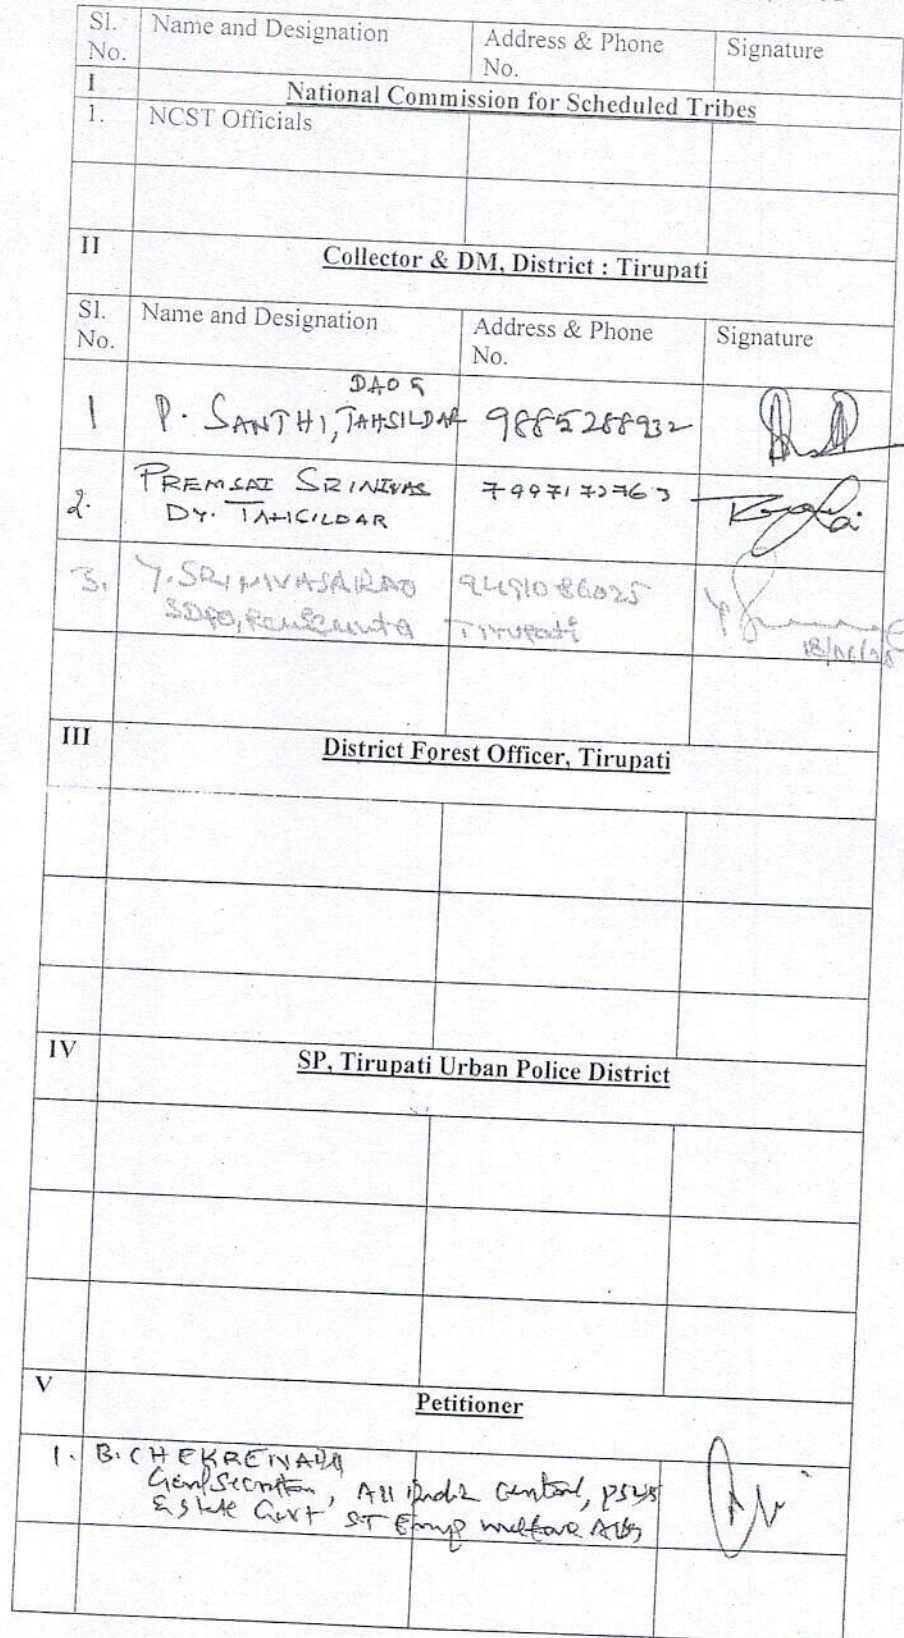 Sl. No. Name and Designation Address & Phone No. Signature
I National Commission for Scheduled Tribes
1. NCST Officials
II Collector & DM, District : Tirupati
Sl. No. Name and Designation Address & Phone No. Signature
DAO
1 P. SANTHI, TAHSILDAR 9885288932
2. PREMSAI SRINIVAS 7997172763
DY. TAHSILDAR
3. Y. SRINIVASARAO 9491086025
SDPO, Renigunta Tirupati
III District Forest Officer, Tirupati
IV SP, Tirupati Urban Police District
V Petitioner
1. B.
Genl Secretary, All India Central, PSUs
& State Govt ST Emp welfare